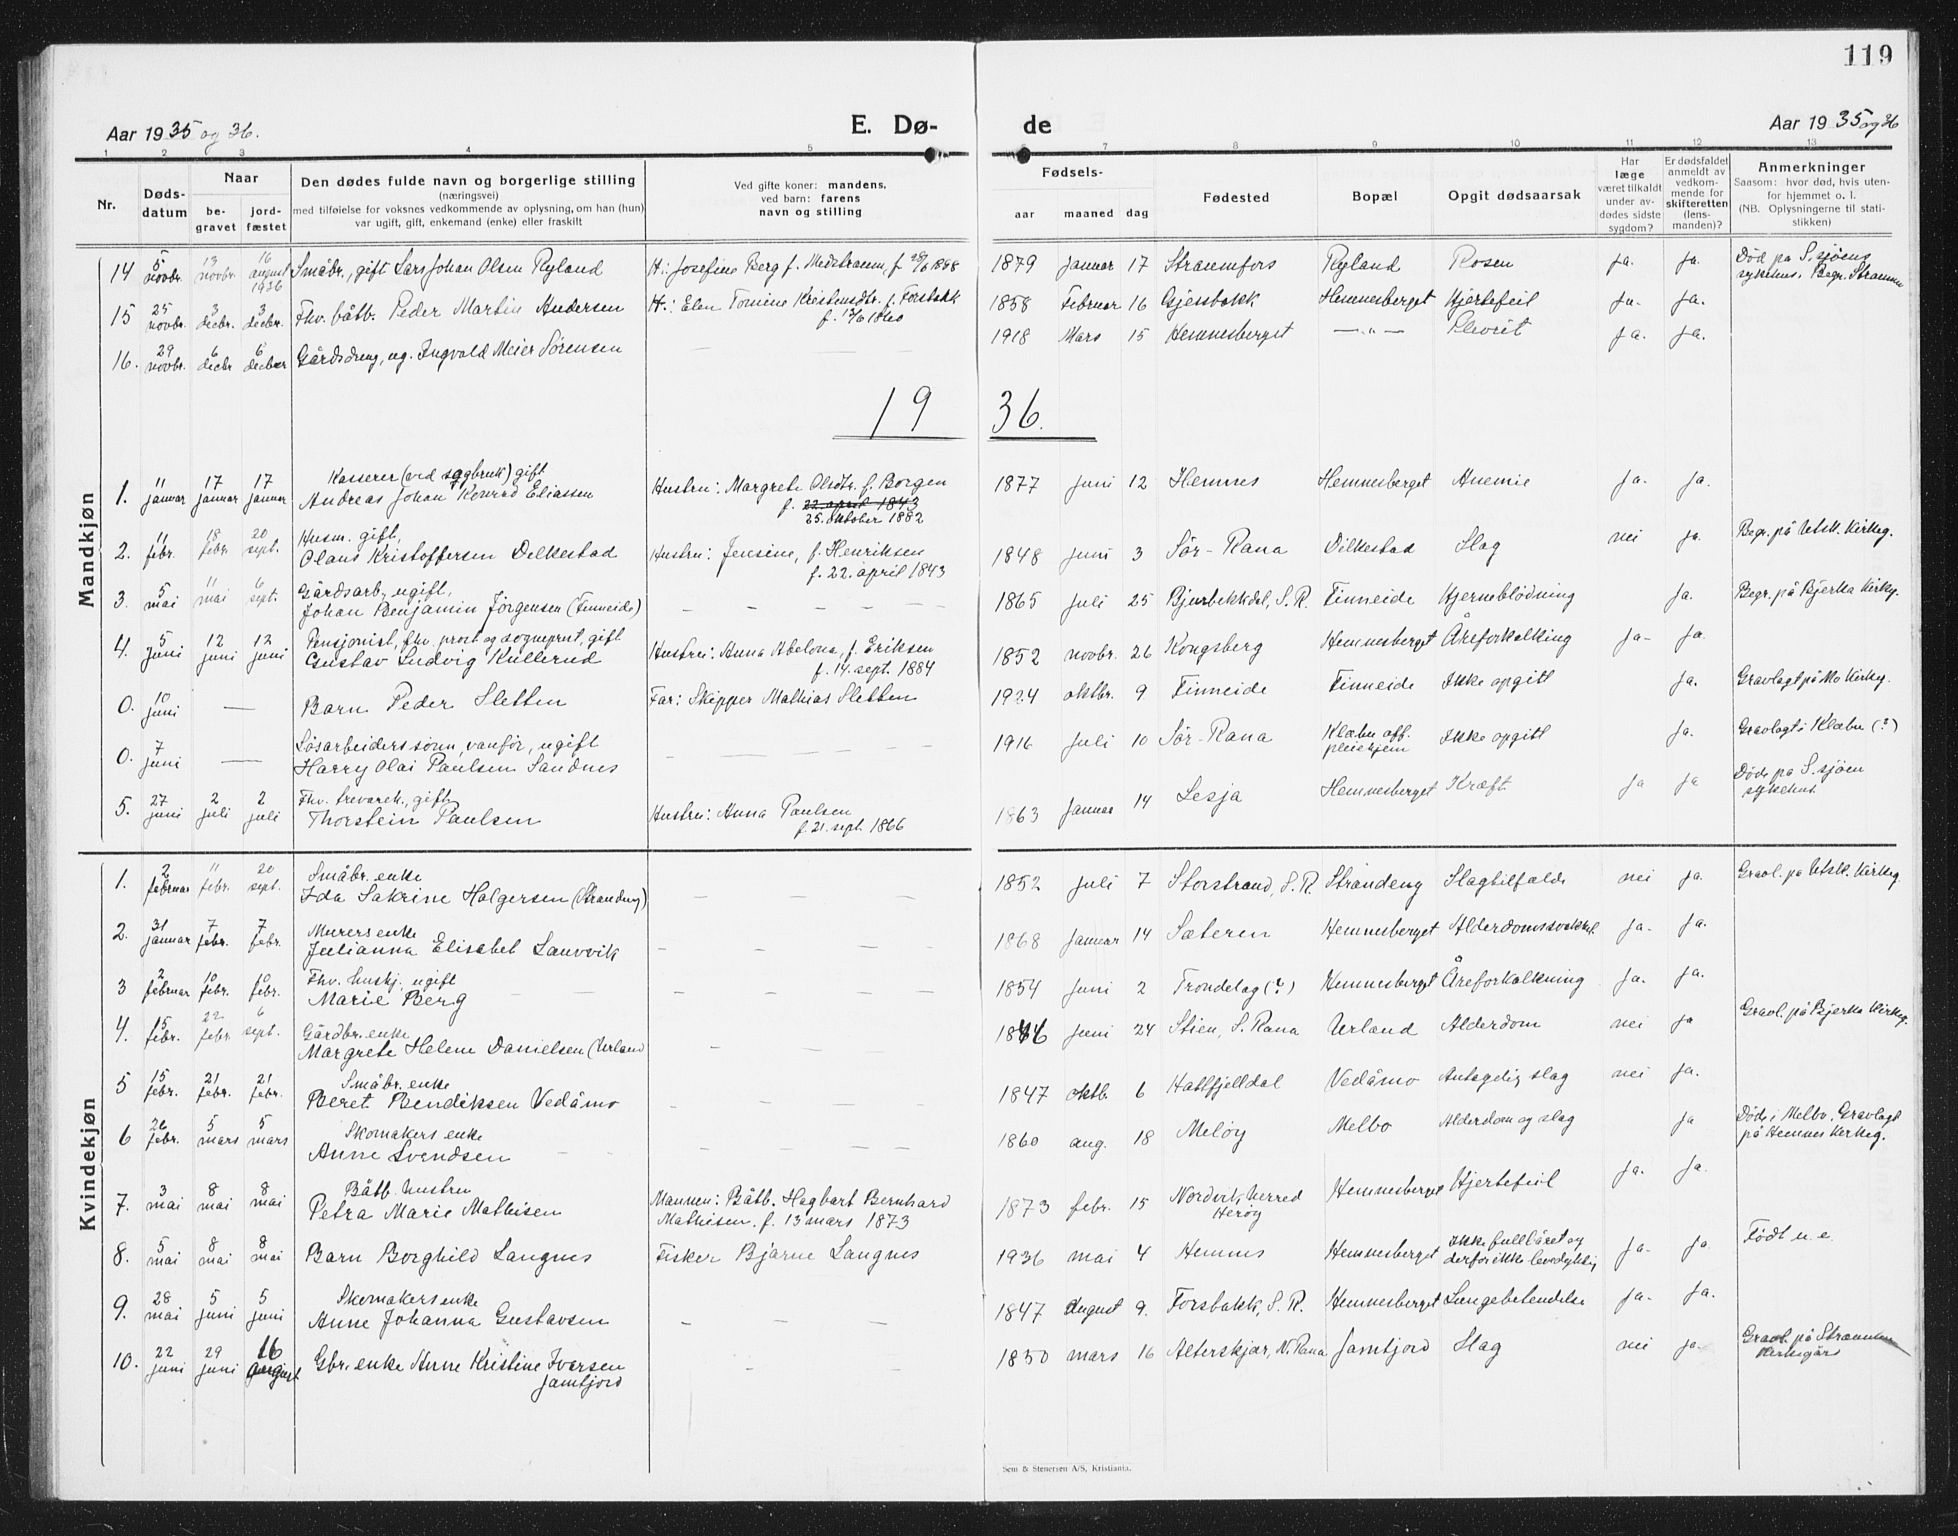 119
Aar 1935 og 36. E. Dø- de Aar 1935 og 36
1 2 3 4 5 6 7 8 9 10 11 12 13
Nr. Døds-datum Naar be-gravet jord-fæstet Den dødes fulde navn og borgerlige stilling (næringsvei) med tilføielse for voksnes vedkommende av oplysning, om han (hun) var ugift, gift, enkemand (enke) eller fraskilt Ved gifte koner: mandens, ved barn: farens navn og stilling Fødsels- aar maaned dag Fødested Bopæl Opgit dødsaarsak Har læge været tilkaldt under av-dødes sidste sygdom? Er dødsfaldet anmeldt av vedkom-mende for skifteretten (lens-manden)? Anmerkninger Saasom: hvor død, hvis uten-for hjemmet o. l. (NB. Oplysningerne til stati-stikken)
Mandkjøn
14 5 novbr. 13 novbr. 16 august 1936 Småbr., gift Lars Johan Olsen Ryland H.: Josefine Berg f. Medstraum, f. 1888 1879 Januar 17 Straumfors Ryland Rosen Ja. Ja. Død på S.sjøens sykehus. Begr. Straumen
15 25 novbr. 3 decbr. 3 decbr. Fhv. båtb. Peder Martin Andersen H.: Elen Tomine Kristensdtr. f. Forsbakk f. 1860 1858 Februar 16 Gjesbakk Hemnesberget Hjertefeil Ja. Ja.
16. 29 novbr. 6 decbr 6 decbr Gårdsdreng, ug. Ingvald Meier Sørensen — — — 1918 Mars 15 Hemnesberget —„— Plevrit Ja. Ja.
1936.
1. 11 januar 17 januar 17 januar Kasserer (ved sagbruk) gift Andreas Johan Konrad Eliassen Hustru: Margrete Olsdtr. f. Borgen f. 22. april 1843 25. oktober 1882 1877 Juni 12 Hemnes Hemnesberget Anemie Ja. Ja.
2. 11 febr. 18 febr. 20 sept. Husm. gift, Olaus Kristoffersen Dilkestad Hustru: Jensine, f. Henriksen f. 22. april 1843 1848 Juni 3 Sør-Rana Dilkestad Slag nei ja. Begr. på Utsk. Kirkeg.
3. 5 mai 11 mai 6 sept. Gårdsarb., ugift, Johan Benjamin Jørgensen (Finneide) — — — 1865 Juli 25 Bjurbekkdal, S.R. Finneide Hjerneblødning Ja. Begr. på Bjerka Kirkeg.
4. 5 juni 12 juni 12 juni Pensjonist, fhv. prost og sogneprest, gift Gustav Ludvig Kullerud Hustru: Anna Abelona, f. Eriksen f. 14. sept. 1884 1852 novbr. 26 Kongsberg Hemnesberget Åreforkalkning Ja. Ja.
0. 10 juni — Barn Peder Sletten Far: Skipper Mathias Sletten 1924 oktbr. 9 Finneide Finneide Ikke opgitt Ja. Gravlagt på Mo Kirkeg.
0. 7 juni — Løsarbeiders sønn, vanfør, ugift Harry Olai Paulsen Sandnes — — — 1916 Juli 10 Sør-Rana Klæbu off. pleiehjem Ikke opgitt Ja. Gravlagt i Klæbu (?)
5. 27 juni 2 juli 2 juli Fhv. trevareh., gift Thorstein Paulsen Hustru: Anna Paulsen f. 21. sept. 1866 1863 Januar 14 Lesja Hemnesberget Kræft Ja Ja Døde på S.sjøen sykehus
Kvindekjøn
1. 2 februar 11 febr. 20 sept. Småbr. enke Ida Sakrine Holgersen (Strandeng) — — — 1852 Juli 7 Storstrand, S.R. Strandeng Slagtilfelde nei ja. Gravl. på Utsk. Kirkeg.
2. 31 januar 7 febr. 7 febr. Murers enke Julianna Elisabet Lauvvik — — — 1868 Januar 14 Sæteren Hemnesberget Alderdomssvakhet Ja. Ja.
3 2 februar 10 febr. 10 febr. Fhv. huskj. ugift Marie Berg — — — 1854 Juni 2 Trondelag (?) Hemnesberget Åreforkalkning Ja. Ja.
4. 15 febr. 22 febr 6 sept. Gårdbr. enke Margrete Helene Danielsen (Urland — — — 1846 Juni 24 Stien, S. Rana Urland Alderdom nei ja Gravl. på Bjerka Kirkeg.
5 15 febr. 21 febr. 21 febr. Småbr. enke Beret Bendiksen Vedåmo — — — 1847 oktb. 6 Hattfjelldal Vedåmo Antagelig slag nei Ja.
6 26 febr. 5 mars 5 mars Skomakers enke Anne Svendsen — — — 1860 aug. 18 Meløy Melbo Alderdom og slag Ja Døde i Melbo. Gravlagt på Hemnes Kirkeg.
7. 3 mai 8 mai 8 mai Båtb. hustru Petra Marie Mathisen Mannen: Båtb. Hagbart Bernhard Mathisen. f. 13 mars 1873 1873 febr. 15 Nordvik, herred Herøy Hemnesberget Hjertefeil Ja. Ja.
8. 5 mai 8 mai 8 mai Barn Borghild Langnes Fisker Bjarne Langnes 1936 mai 4 Hemnes Hemnesberget Ikke fullbåret og derfor ikke levedyktig Ja. Ja. Født u. e.
9. 28 mai 5 juni 5 juni Skomakers enke Anne Johanna Gustavsen — — — 1847 august 9. Forsbakk, S.R. Hemnesberget Lungebetendelse Ja. Ja.
10. 22 juni 29 juni 16 august Gbr. enke Anne Kristine Iversen Jamtjord — — — 1850 mars 16 Alterskjær, N. Rana Jamtjord Slag nei ja. Gravl. på Straumen Kirkegård
Sem & Stenersen A/S, Kristiania.